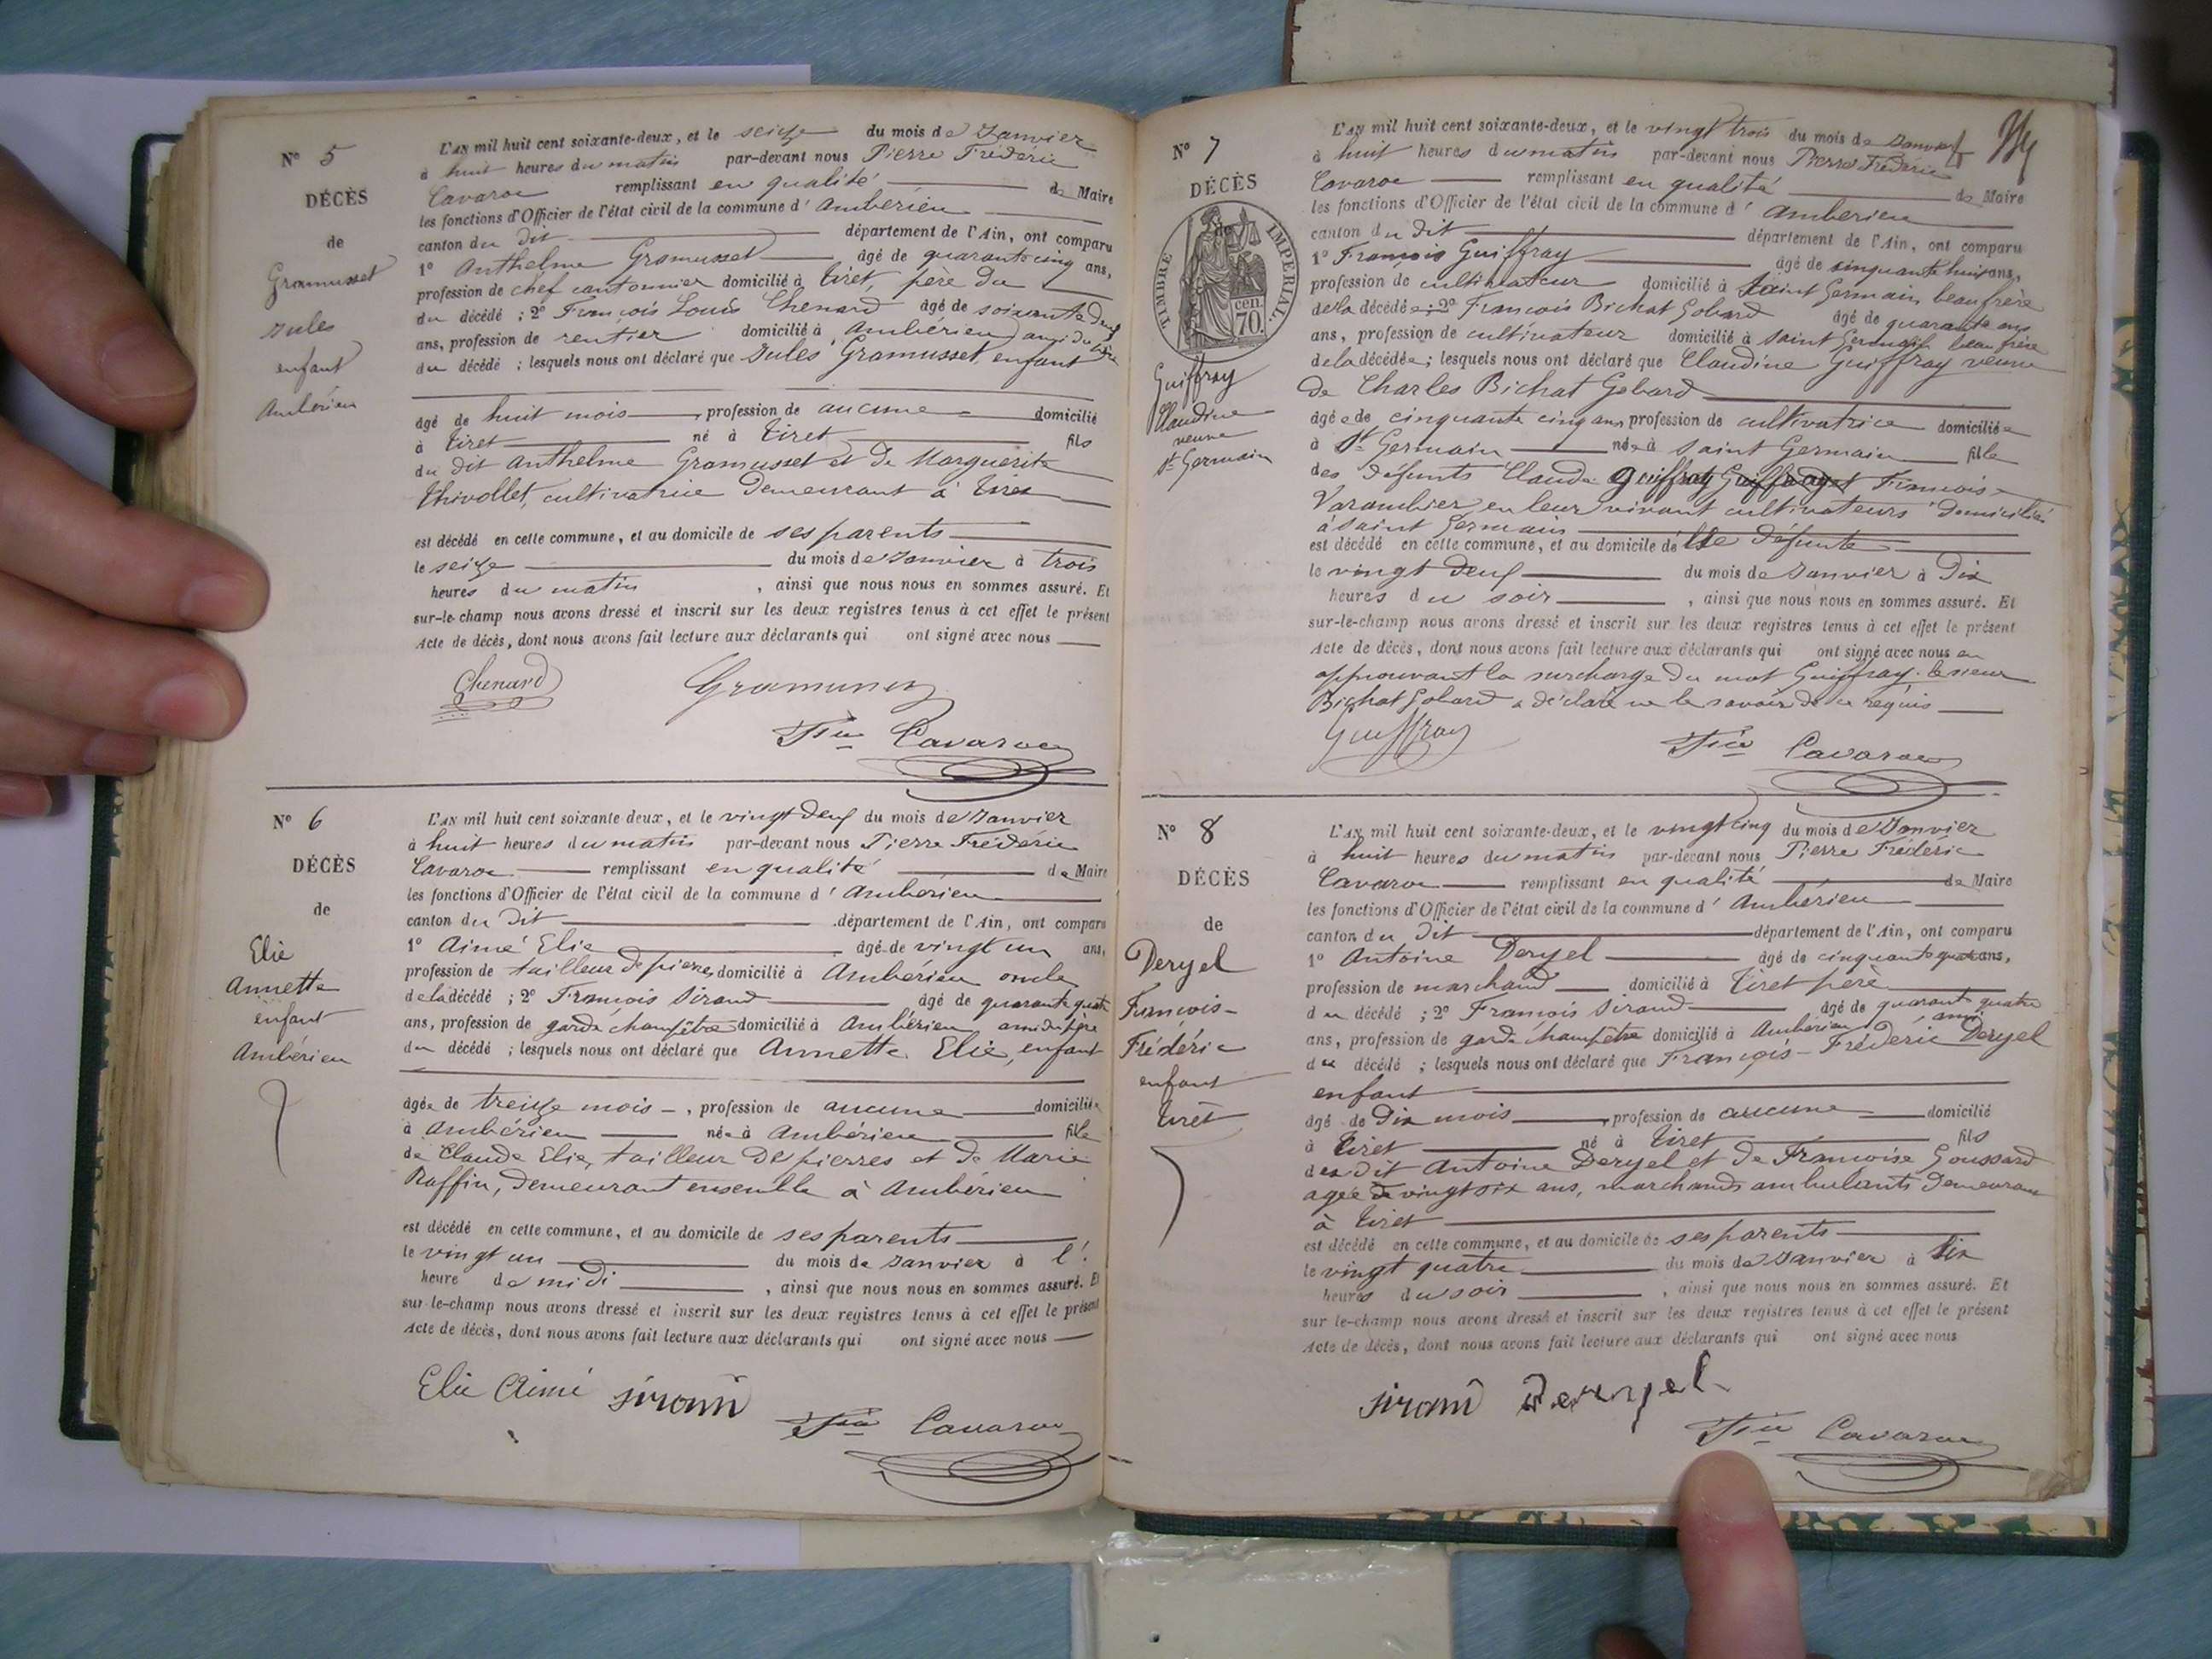 N° 5
DÉCÈS
de
Gramusset
Jules
enfant
Ambérieu
L'AN mil huit cent soixante-deux, et le seize du mois de Janvier
à huit heures du matin par-devant nous Pierre Fréderic
Cavaroc remplissant en qualité de Maire
les fonctions d'Officier de l'état civil de la commune d' Ambérieu
canton du dit département de l'Ain, ont comparu
1° Anthelme Gramusset âgé de quarante cinq ans,
profession de chef cantonnier domicilié à Tiret, père du
du décédé ; 2° François Louis Chenard âgé de soixante deux
ans, profession de rentier domicilié à Ambérieu, ami du père
du décédé ; lesquels nous ont déclaré que Jules Gramusset, enfant
âgé de huit mois, profession de aucune domicilié
à Tiret né à Tiret fils
du dit Anthelme Gramusset et de Marguerite
Thivollet, cultivatrice demeurant à Tiret
est décédé en cette commune, et au domicile de ses parents
le seize du mois de Janvier à trois
heures du matin, ainsi que nous nous en sommes assuré. Et
sur-le-champ nous avons dressé et inscrit sur les deux registres tenus à cet effet le présent
Acte de décès, dont nous avons fait lecture aux déclarants qui ont signé avec nous
Chenard Gramusset
Fic Cavaroc
N° 6
DÉCÈS
de
Elie
Annette
enfant
Ambérieu
L'AN mil huit cent soixante-deux, et le vingt deux du mois de Janvier
à huit heures du matin par-devant nous Pierre Fréderic
Cavaroc remplissant en qualité de Maire
les fonctions d'Officier de l'état civil de la commune d' Ambérieu
canton du dit département de l'Ain, ont comparu
1° Aimé Elie âgé de vingt un ans,
profession de tailleur de pierres domicilié à Ambérieu oncle
de la décédé ; 2° François Sirand âgé de quarante quatre
ans, profession de garde champêtre domicilié à Ambérieu ami du père
du décédé ; lesquels nous ont déclaré que Annette Elie, enfant
âgée de treize mois, profession de aucune domiciliée
à Ambérieu née à Ambérieu fille
de Claude Elie, tailleur de pierres et de Marie
Raffin, demeurant ensemble à Ambérieu
est décédé en cette commune, et au domicile de ses parents
le vingt un du mois de Janvier à l'
heure de midi, ainsi que nous nous en sommes assuré. Et
sur-le-champ nous avons dressé et inscrit sur les deux registres tenus à cet effet le présent
Acte de décès, dont nous avons fait lecture aux déclarants qui ont signé avec nous
Elie Aimé Sirand
Fic Cavaroc
N° 7
DÉCÈS
de
TIMBRE IMPÉRIAL
70 cen.
Guiffray
Claudine
veuve
St Germain
L'AN mil huit cent soixante-deux, et le vingt trois du mois de Janvier
à huit heures du matin par-devant nous Pierre Fréderic
Cavaroc remplissant en qualité de Maire
les fonctions d'Officier de l'état civil de la commune d' Ambérieu
canton du dit département de l'Ain, ont comparu
1° François Guiffray âgé de cinquante huit ans,
profession de cultivateur domicilié à Saint Germain, beau frère
de la décédé ; 2° François Bichat Gobard âgé de quarante ans
ans, profession de cultivateur domicilié à Saint Germain beau frère
de la décédée ; lesquels nous ont déclaré que Claudine Guiffray veuve
de Charles Bichat Gobard
âgée de cinquante cinq ans profession de cultivatrice domiciliée
à St Germain née à Saint Germain fille
des défunts Claude Guiffray et François
Varambier en leur vivant cultivateurs domiciliés
à Saint Germain
est décédé en cette commune, et au domicile de la défunte
le vingt deux du mois de Janvier à dix
heures du soir, ainsi que nous nous en sommes assuré. Et
sur-le-champ nous avons dressé et inscrit sur les deux registres tenus à cet effet le présent
Acte de décès, dont nous avons fait lecture aux déclarants qui ont signé avec nous en
approuvant la surcharge du mot Guiffray. le sieur
Bichat Gobard a déclaré ne le savoir de ce requis
Guiffray
Fic Cavaroc
N° 8
DÉCÈS
de
Deryel
François-
Fréderic
enfant
Tiret
L'AN mil huit cent soixante-deux, et le vingt cinq du mois de Janvier
à huit heures du matin par-devant nous Pierre Fréderic
Cavaroc remplissant en qualité de Maire
les fonctions d'Officier de l'état civil de la commune d' Ambérieu
canton du dit département de l'Ain, ont comparu
1° Antoine Deryel âgé de cinquante quatre ans,
profession de marchand domicilié à Tiret père
du décédé ; 2° François Sirand âgé de quarante quatre
ans, profession de garde champêtre domicilié à Ambérieu, ami
du décédé ; lesquels nous ont déclaré que François-Fréderic Deryel
enfant
âgé de dix mois, profession de aucune domicilié
à Tiret né à Tiret fils
du dit Antoine Deryel et de Françoise Goussard
agée de vingt six ans, marchands ambulants demeurant
à Tiret
est décédé en cette commune, et au domicile de ses parents
le vingt quatre du mois de Janvier à six
heures du soir, ainsi que nous nous en sommes assuré. Et
sur-le-champ nous avons dressé et inscrit sur les deux registres tenus à cet effet le présent
Acte de décès, dont nous avons fait lecture aux déclarants qui ont signé avec nous
Sirand Deryel
Fic Cavaroc